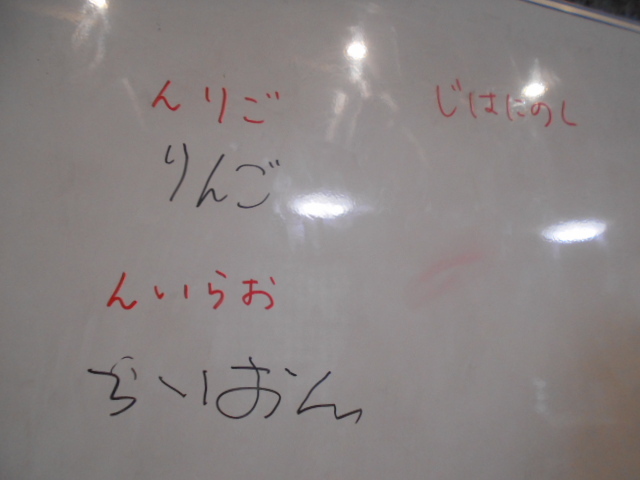 んりご
じはにのし
りんご
んいらお
らいおん